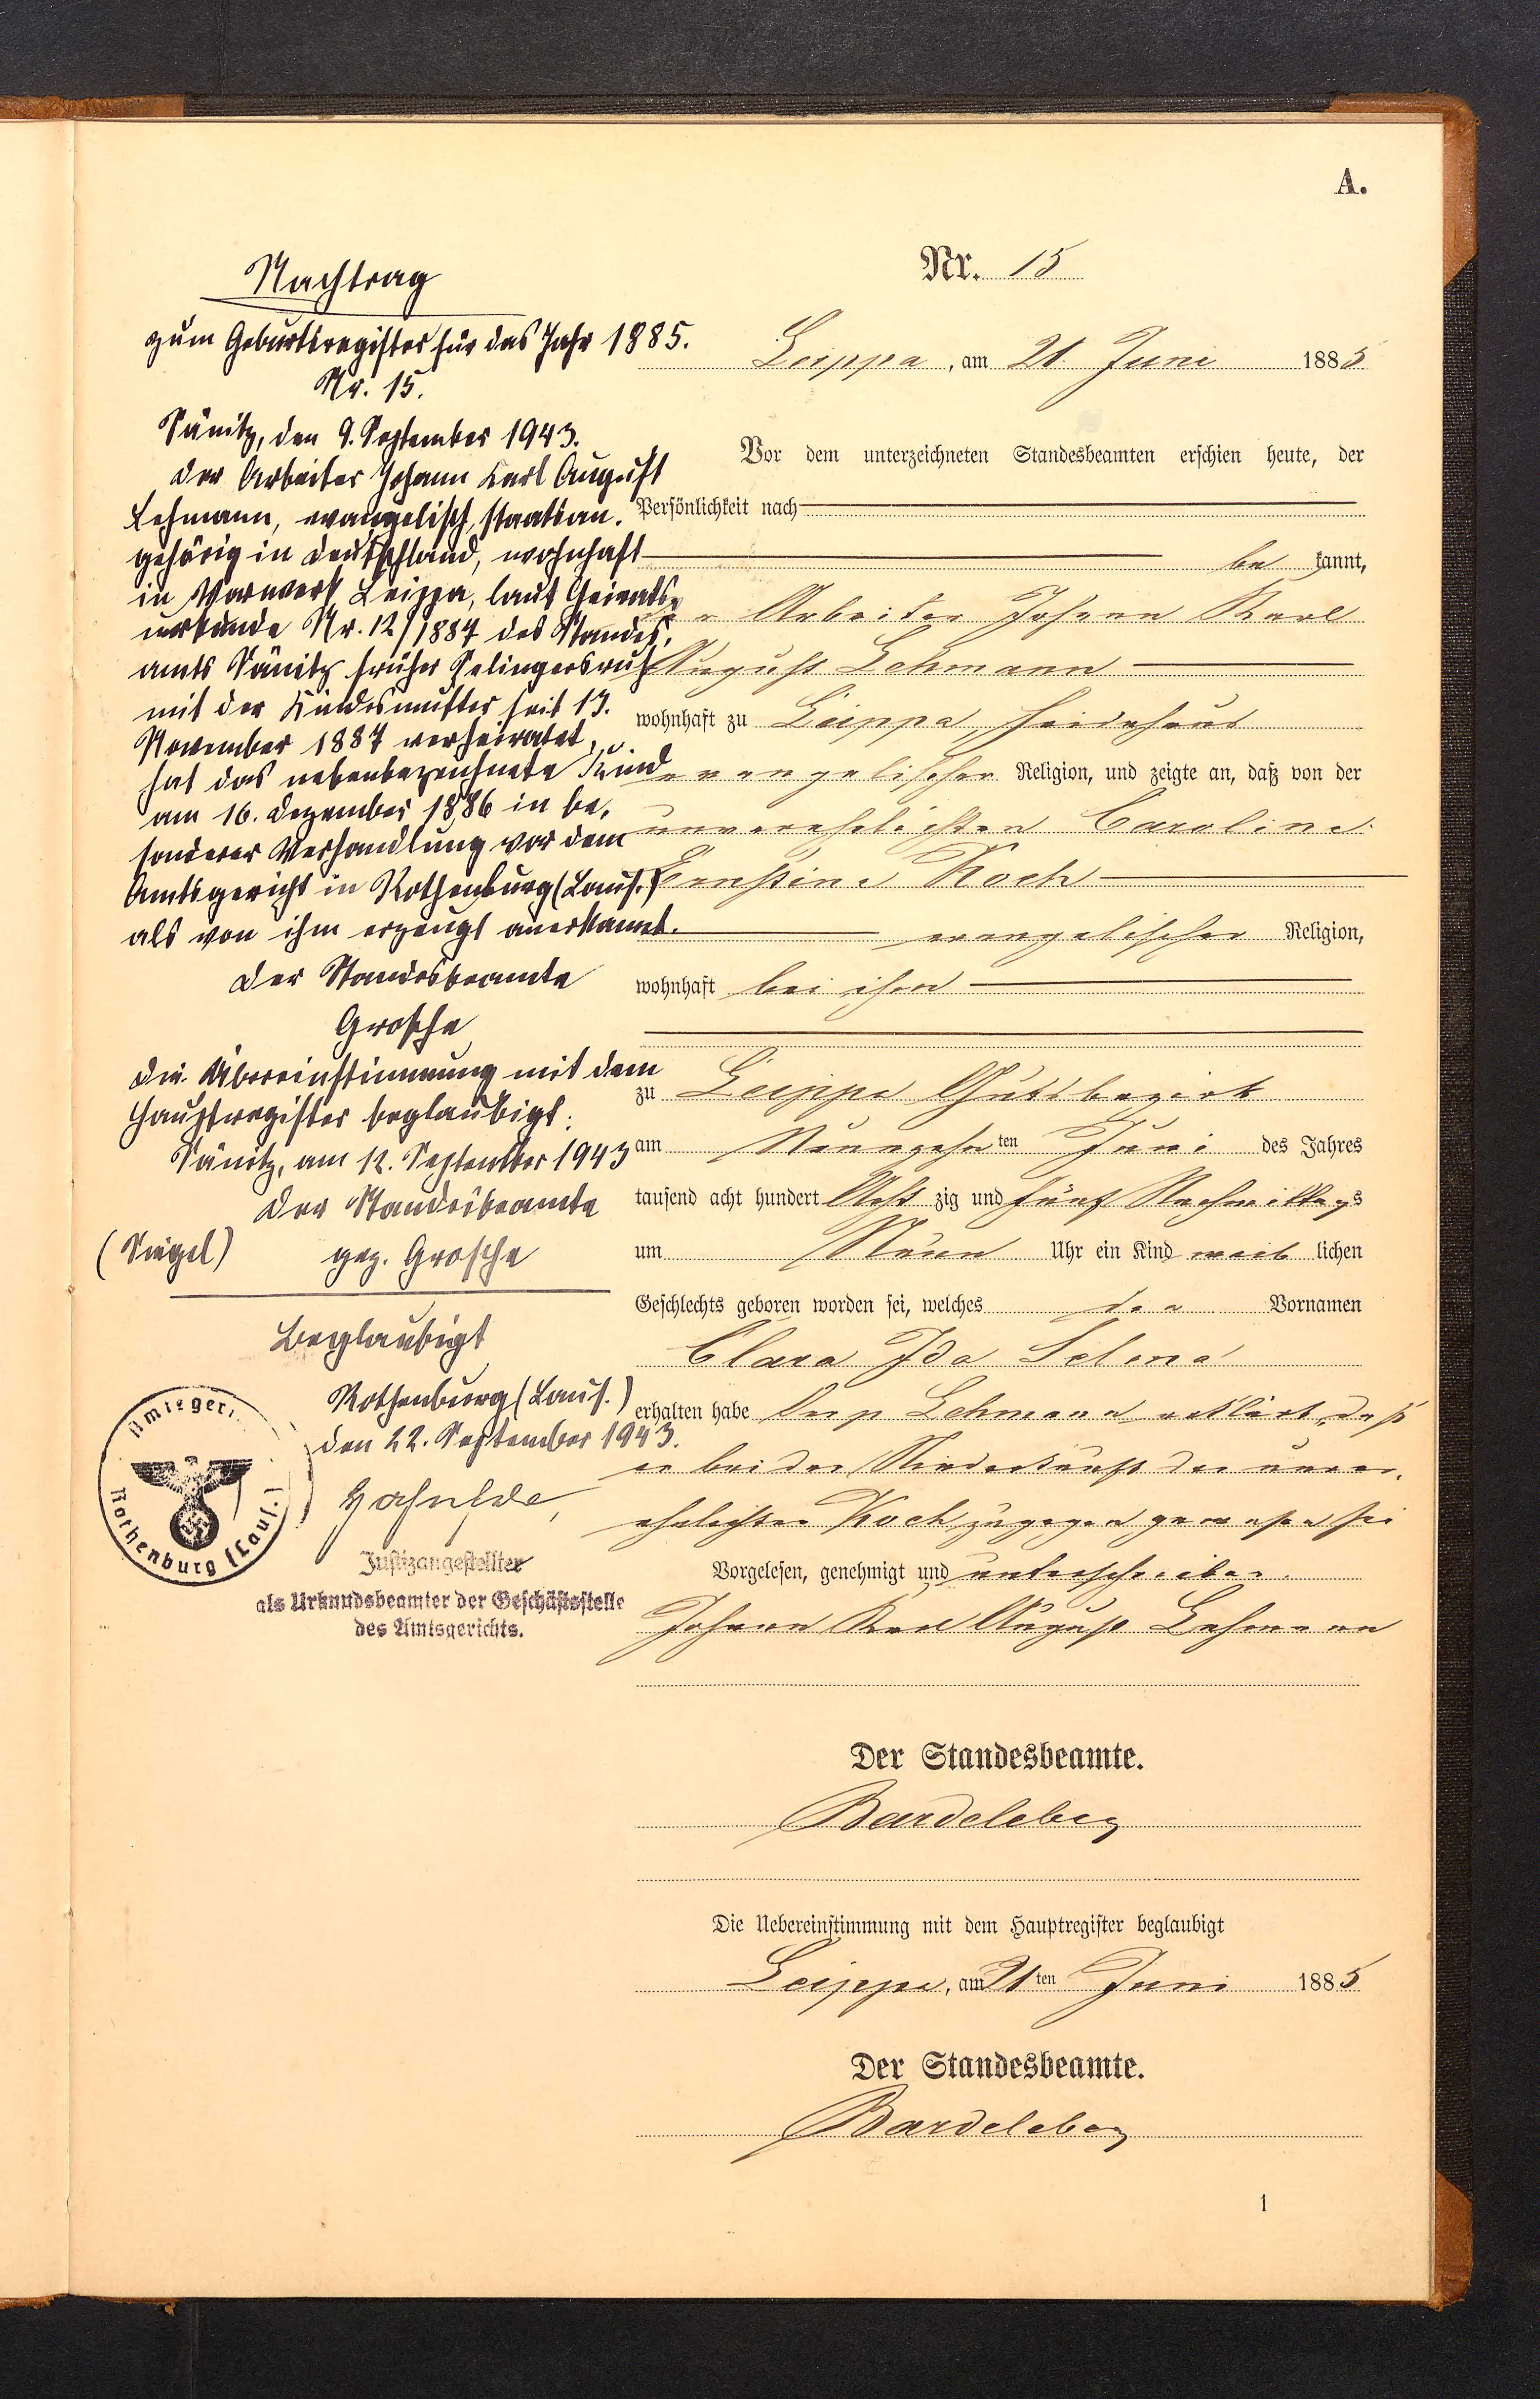 A.
Nachtrag
zum Geburtsregister für das Jahr 1885.
Nr. 15.
Sänitz, den 9. September 1943.
Der Arbeiter Johann Karl August
Lehmann, evangelisch, staatsan-
gehörig in Deutschland, wohnhaft
in Vorwerk Leippa, laut Heirats-
urkunde Nr. 12/1887 des Standes-
amts Sänitz früher Selingersruh
mit der Kindesmutter seit 13.
November 1887 verheiratet,
hat das nebenbezeichnete Kind
am 16. Dezember 1886 in be-
sonderer Verhandlung vor dem
Amtsgericht in Rothenburg (Laus.)
als von ihm erzeugt anerkannt.
Der Standesbeamte
Grosche
Die Übereinstimmung mit dem
Hauptregister beglaubigt.
Sänitz, am 12. September 1943
Der Standesbeamte
(Siegel) gez. Grosche
Beglaubigt
Rothenburg (Laus.)
den 22. September 1943.
Amtsger.
Rothenburg (Laus.)
Justizangestellter
als Urkundsbeamter der Geschäftsstelle
des Amtsgerichts.
Nr. 15
Leippa, am 21. Juni 1885
Vor dem unterzeichneten Standesbeamten erschien heute, der
Persönlichkeit nach
be kannt,
der Arbeiter Johann Karl
August Lehmann
wohnhaft zu Leippa, Heidehaus
evangelischer Religion, und zeigte an, daß von der
unverehelichten Caroline
Ernstine Koch
evangelischer Religion,
wohnhaft bei ihm
zu Leippa Gutsbezirk
am Neunzehn ten Juni des Jahres
tausend acht hundert Acht zig und fünf Nachmittags
um Neun Uhr ein Kind weib lichen
Geschlechts geboren worden sei, welches die Vornamen
Clara Ida Selma
erhalten habe Der p Lehmann erklärt, daß
er bei der Niederkunft der unver-
ehelichten Koch zugegen gewesen sei
Vorgelesen, genehmigt und unterschrieben.
Johann Karl August Lehmann
Der Standesbeamte.
Bardeleben
Die Uebereinstimmung mit dem Hauptregister beglaubigt
Leippa, am 21 ten Juni 1885
Der Standesbeamte.
Bardeleben
1